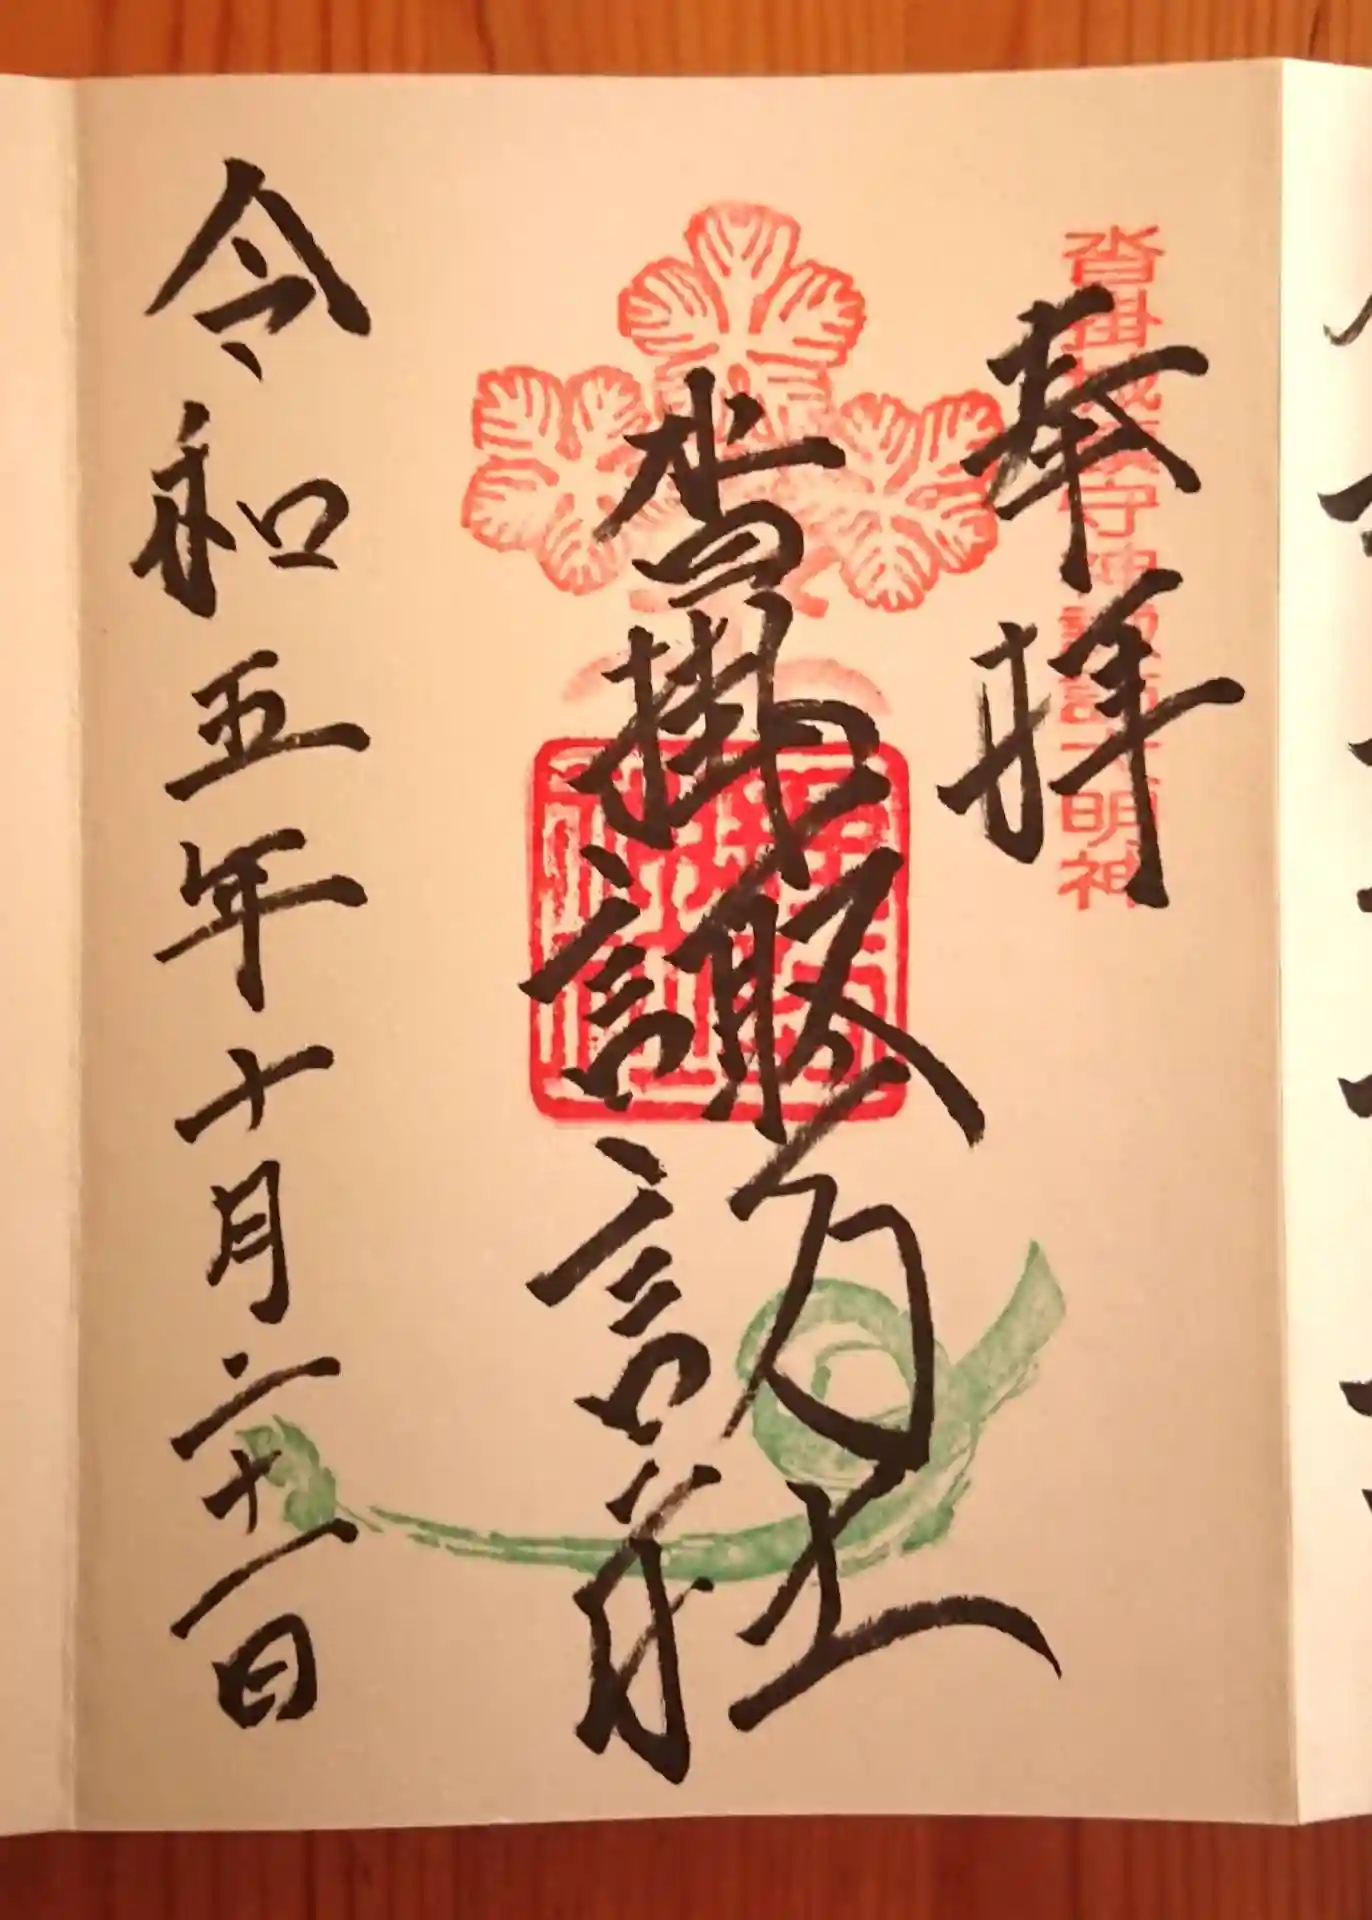 奉拝
沓掛城鎮守神諏訪大明神
沓掛諏訪社
令和五年十月二十一日